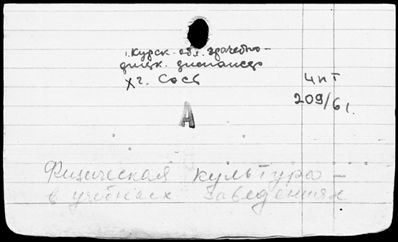 1. Курск. обл. врачебно-
физк. диспансер
х г. Сосв
Ч п Т
209/61
А
Физическая культура -
в учебных заведениях